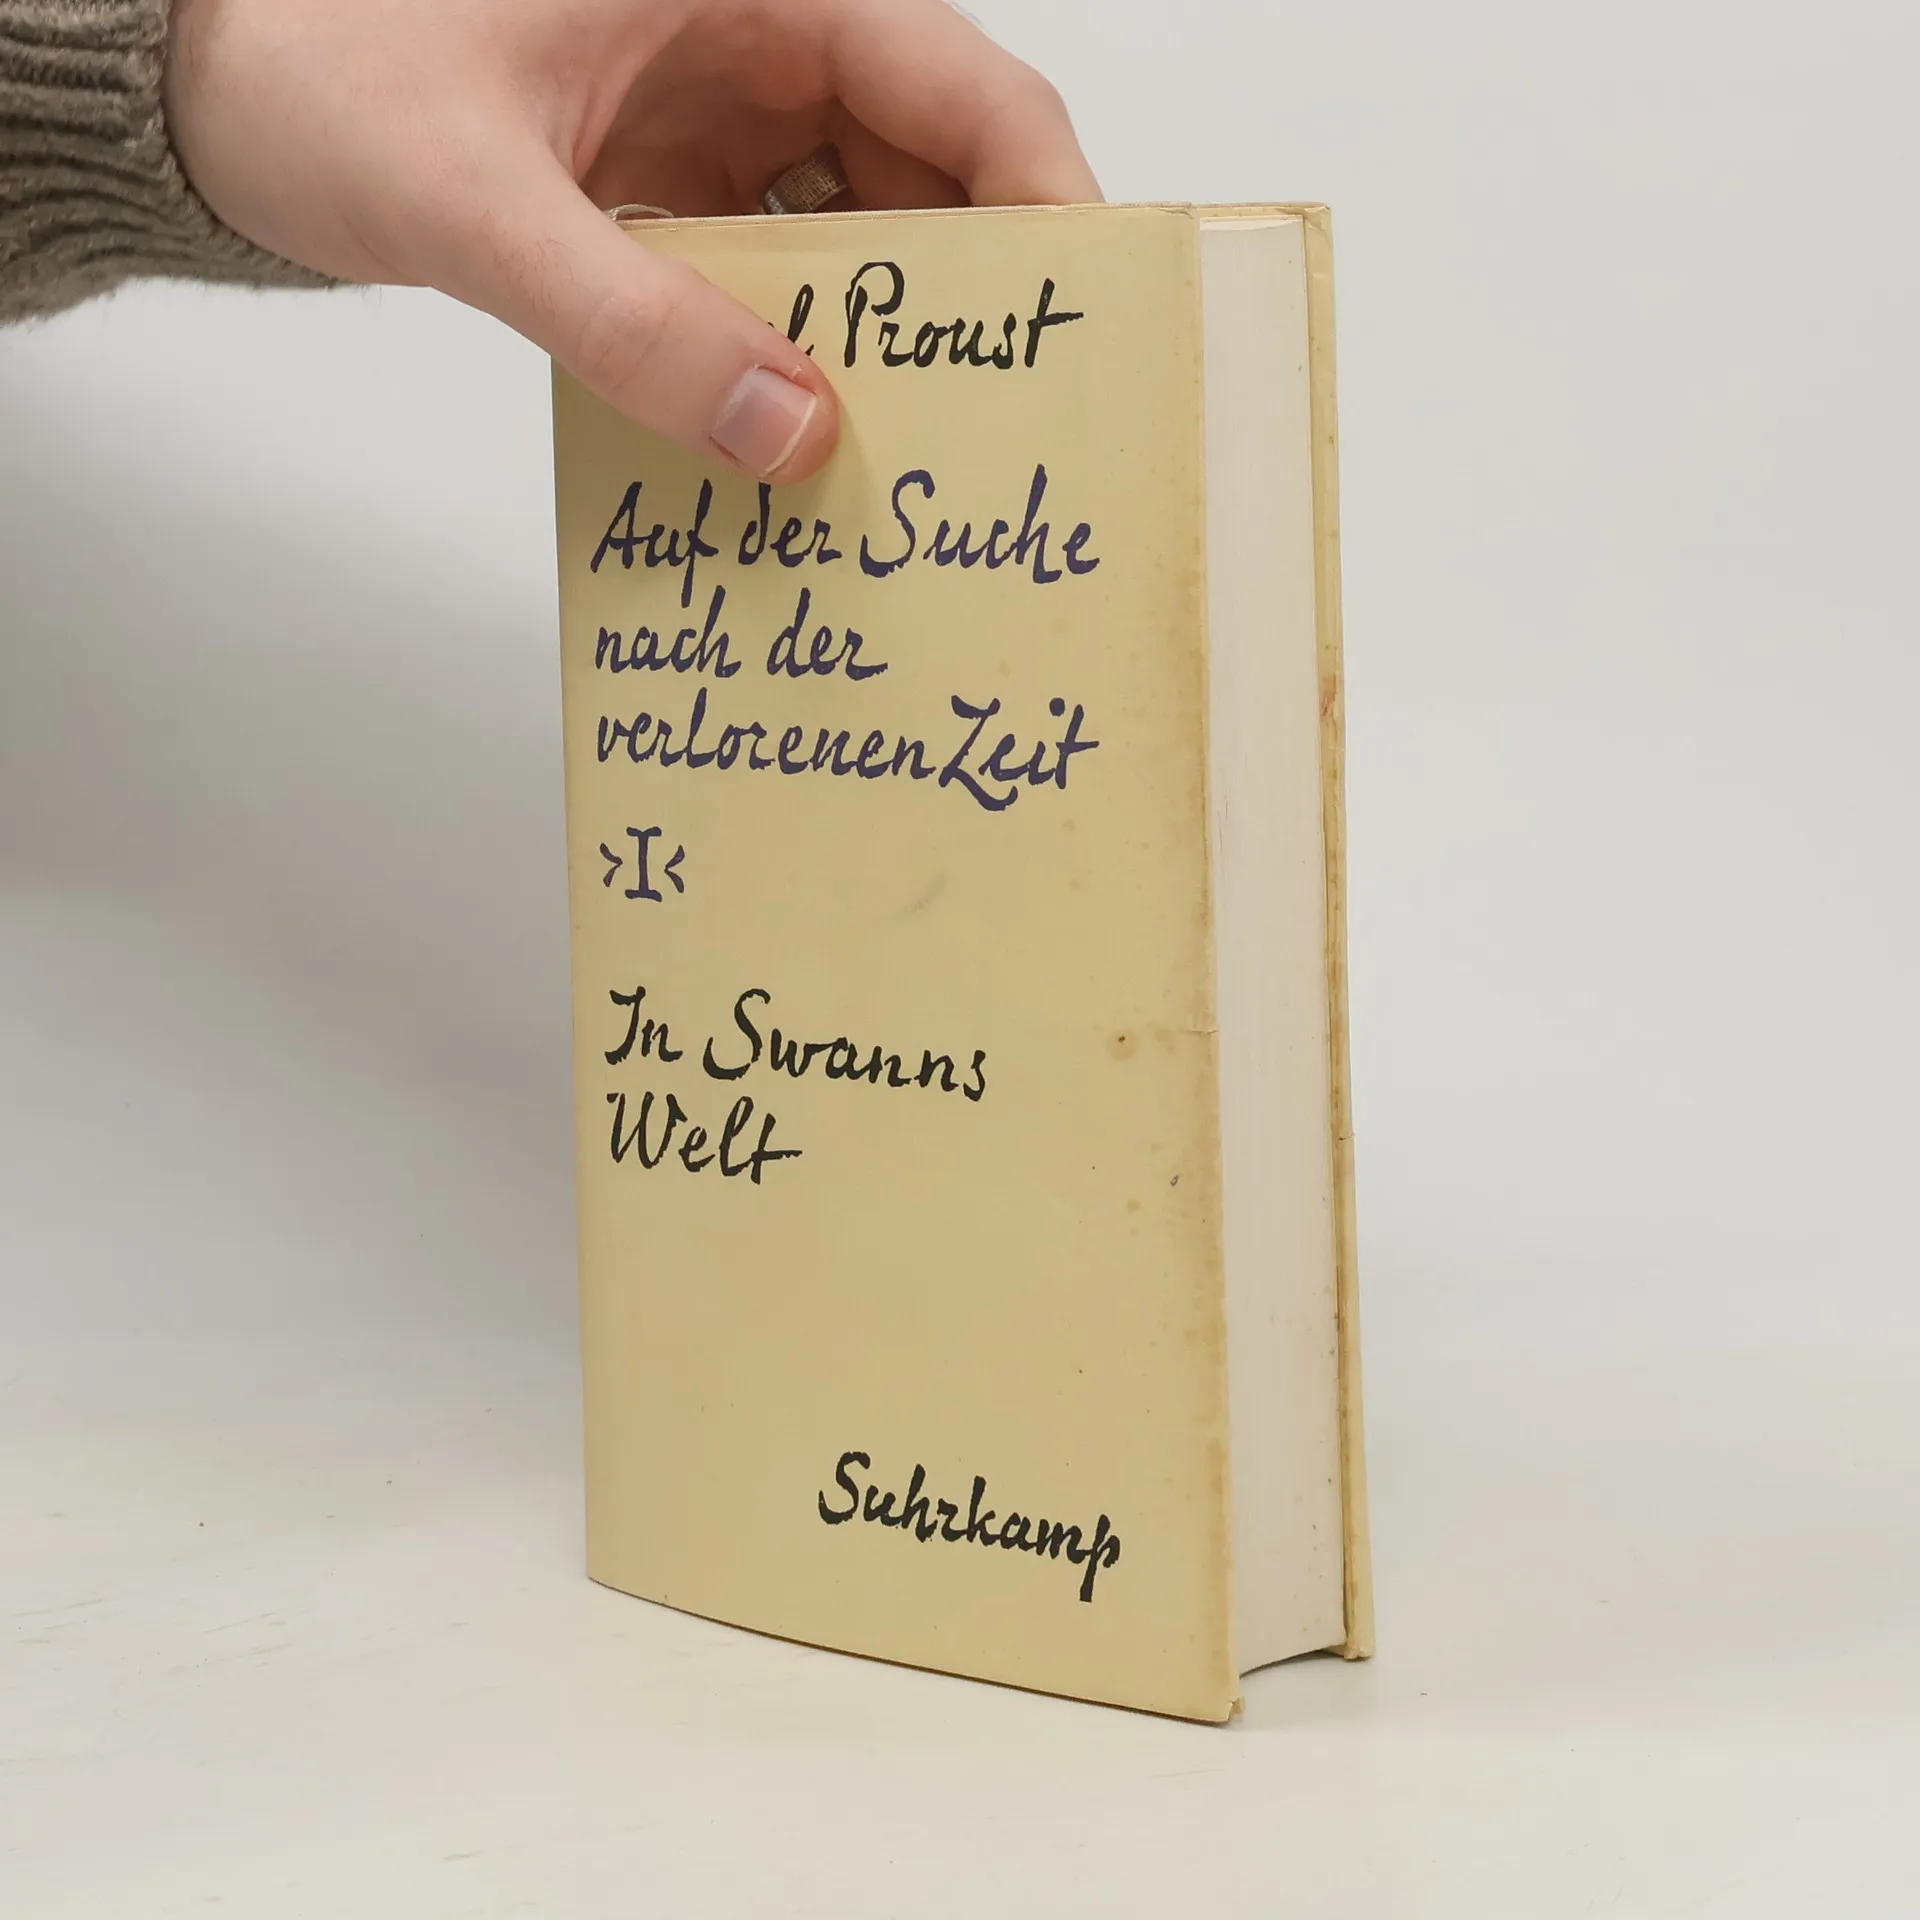 Proust
Auf der Suche
nach der
verlorenen Zeit
>I<
In Swanns
Welt
Suhrkamp